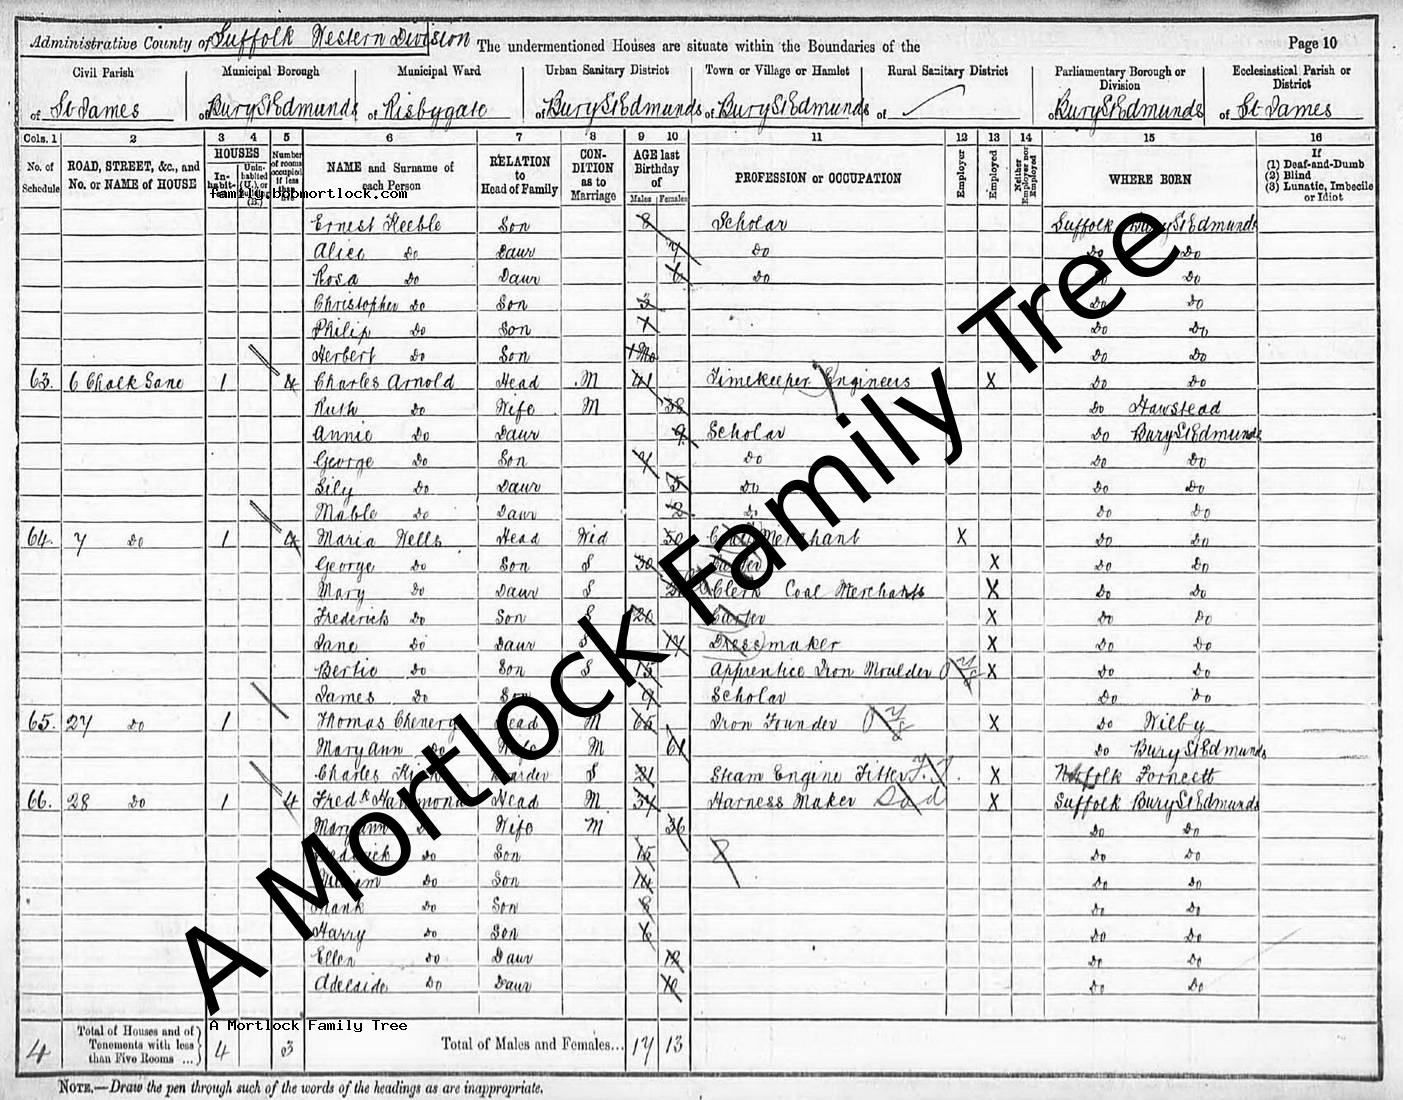 Administrative County of Suffolk Western Division The undermentioned Houses are situate within the Boundaries of the Page 10
Civil Parish Municipal Borough Municipal Ward Urban Sanitary District Town or Village or Hamlet Rural Sanitary District Parliamentary Borough or Division Ecclesiastical Parish or District
of St James of Bury St Edmunds of Risbygate of Bury St Edmunds of Bury St Edmunds of of Bury St Edmunds of St James
Cols. 1 2 3 4 5 6 7 8 9 10 11 12 13 14 15 16
No. of Schedule ROAD, STREET, &c., and No. or NAME of HOUSE HOUSES Inhabit- Uninhabited (U.), or Building (B.) Number of rooms occupied if less than five NAME and Surname of each Person RELATION to Head of Family CONDITION as to Marriage AGE last Birthday of Males Females PROFESSION or OCCUPATION Employer Employed Neither Employer nor Employed WHERE BORN If (1) Deaf-and-Dumb (2) Blind (3) Lunatic, Imbecile or Idiot
family.bobmortlock.com
Ernest Keeble Son 8 Scholar Suffolk Bury St Edmunds
Alice Do Daur 7 Do Do Do
Rosa Do Daur 6 Do Do Do
Christopher Do Son 3 Do Do
Philip Do Son 1 Do Do
Herbert Do Son 1 Mo Do Do
63. 6 Chalk Lane 1 4 Charles Arnold Head M 41 Timekeeper Engineers X Do Do
Ruth Do Wife M 38 Do Hawstead
Annie Do Daur 9 Scholar Do Bury St Edmunds
George Do Son 7 Do Do Do
Lily Do Daur 5 Do Do Do
Mable Do Daur 2 Do Do Do
64. 7 Do 1 4 Maria Wells Head Wid 50 Coal Merchant X Do Do
George Do Son S 30 Carter X Do Do
Mary Do Daur S Clerk Coal Merchants X Do Do
Frederick Do Son S 20 Carter X Do Do
Jane Do Daur S 17 Dressmaker X Do Do
Bertie Do Son S 15 Apprentice Iron Moulder X Do Do
James Do Son 9 Scholar Do Do
65. 27 Do 1 Thomas Chenery Head M 65 Iron Founder X Do Wilby
Mary Ann Do Wife M 61 Do Bury St Edmunds
Charles Boarder S 21 Steam Engine Fitter X Norfolk Forncett
66. 28 Do 1 4 Fredk Hammond Head M 37 Harness Maker Sad X Suffolk Bury St Edmunds
Mary Ann Do Wife M 36 Do Do
Frederick Do Son 15 Do Do
William Do Son 14 Do Do
Frank Do Son 8 Do Do
Harry Do Son 6 Do Do
Ellen Do Daur 12 Do Do
Adelaide Do Daur 10 Do Do
A Mortlock Family Tree
A Mortlock Family Tree
4 Total of Houses and of Tenements with less than Five Rooms ... 4 3 Total of Males and Females... 17 13
NOTE.—Draw the pen through such of the words of the headings as are inappropriate.